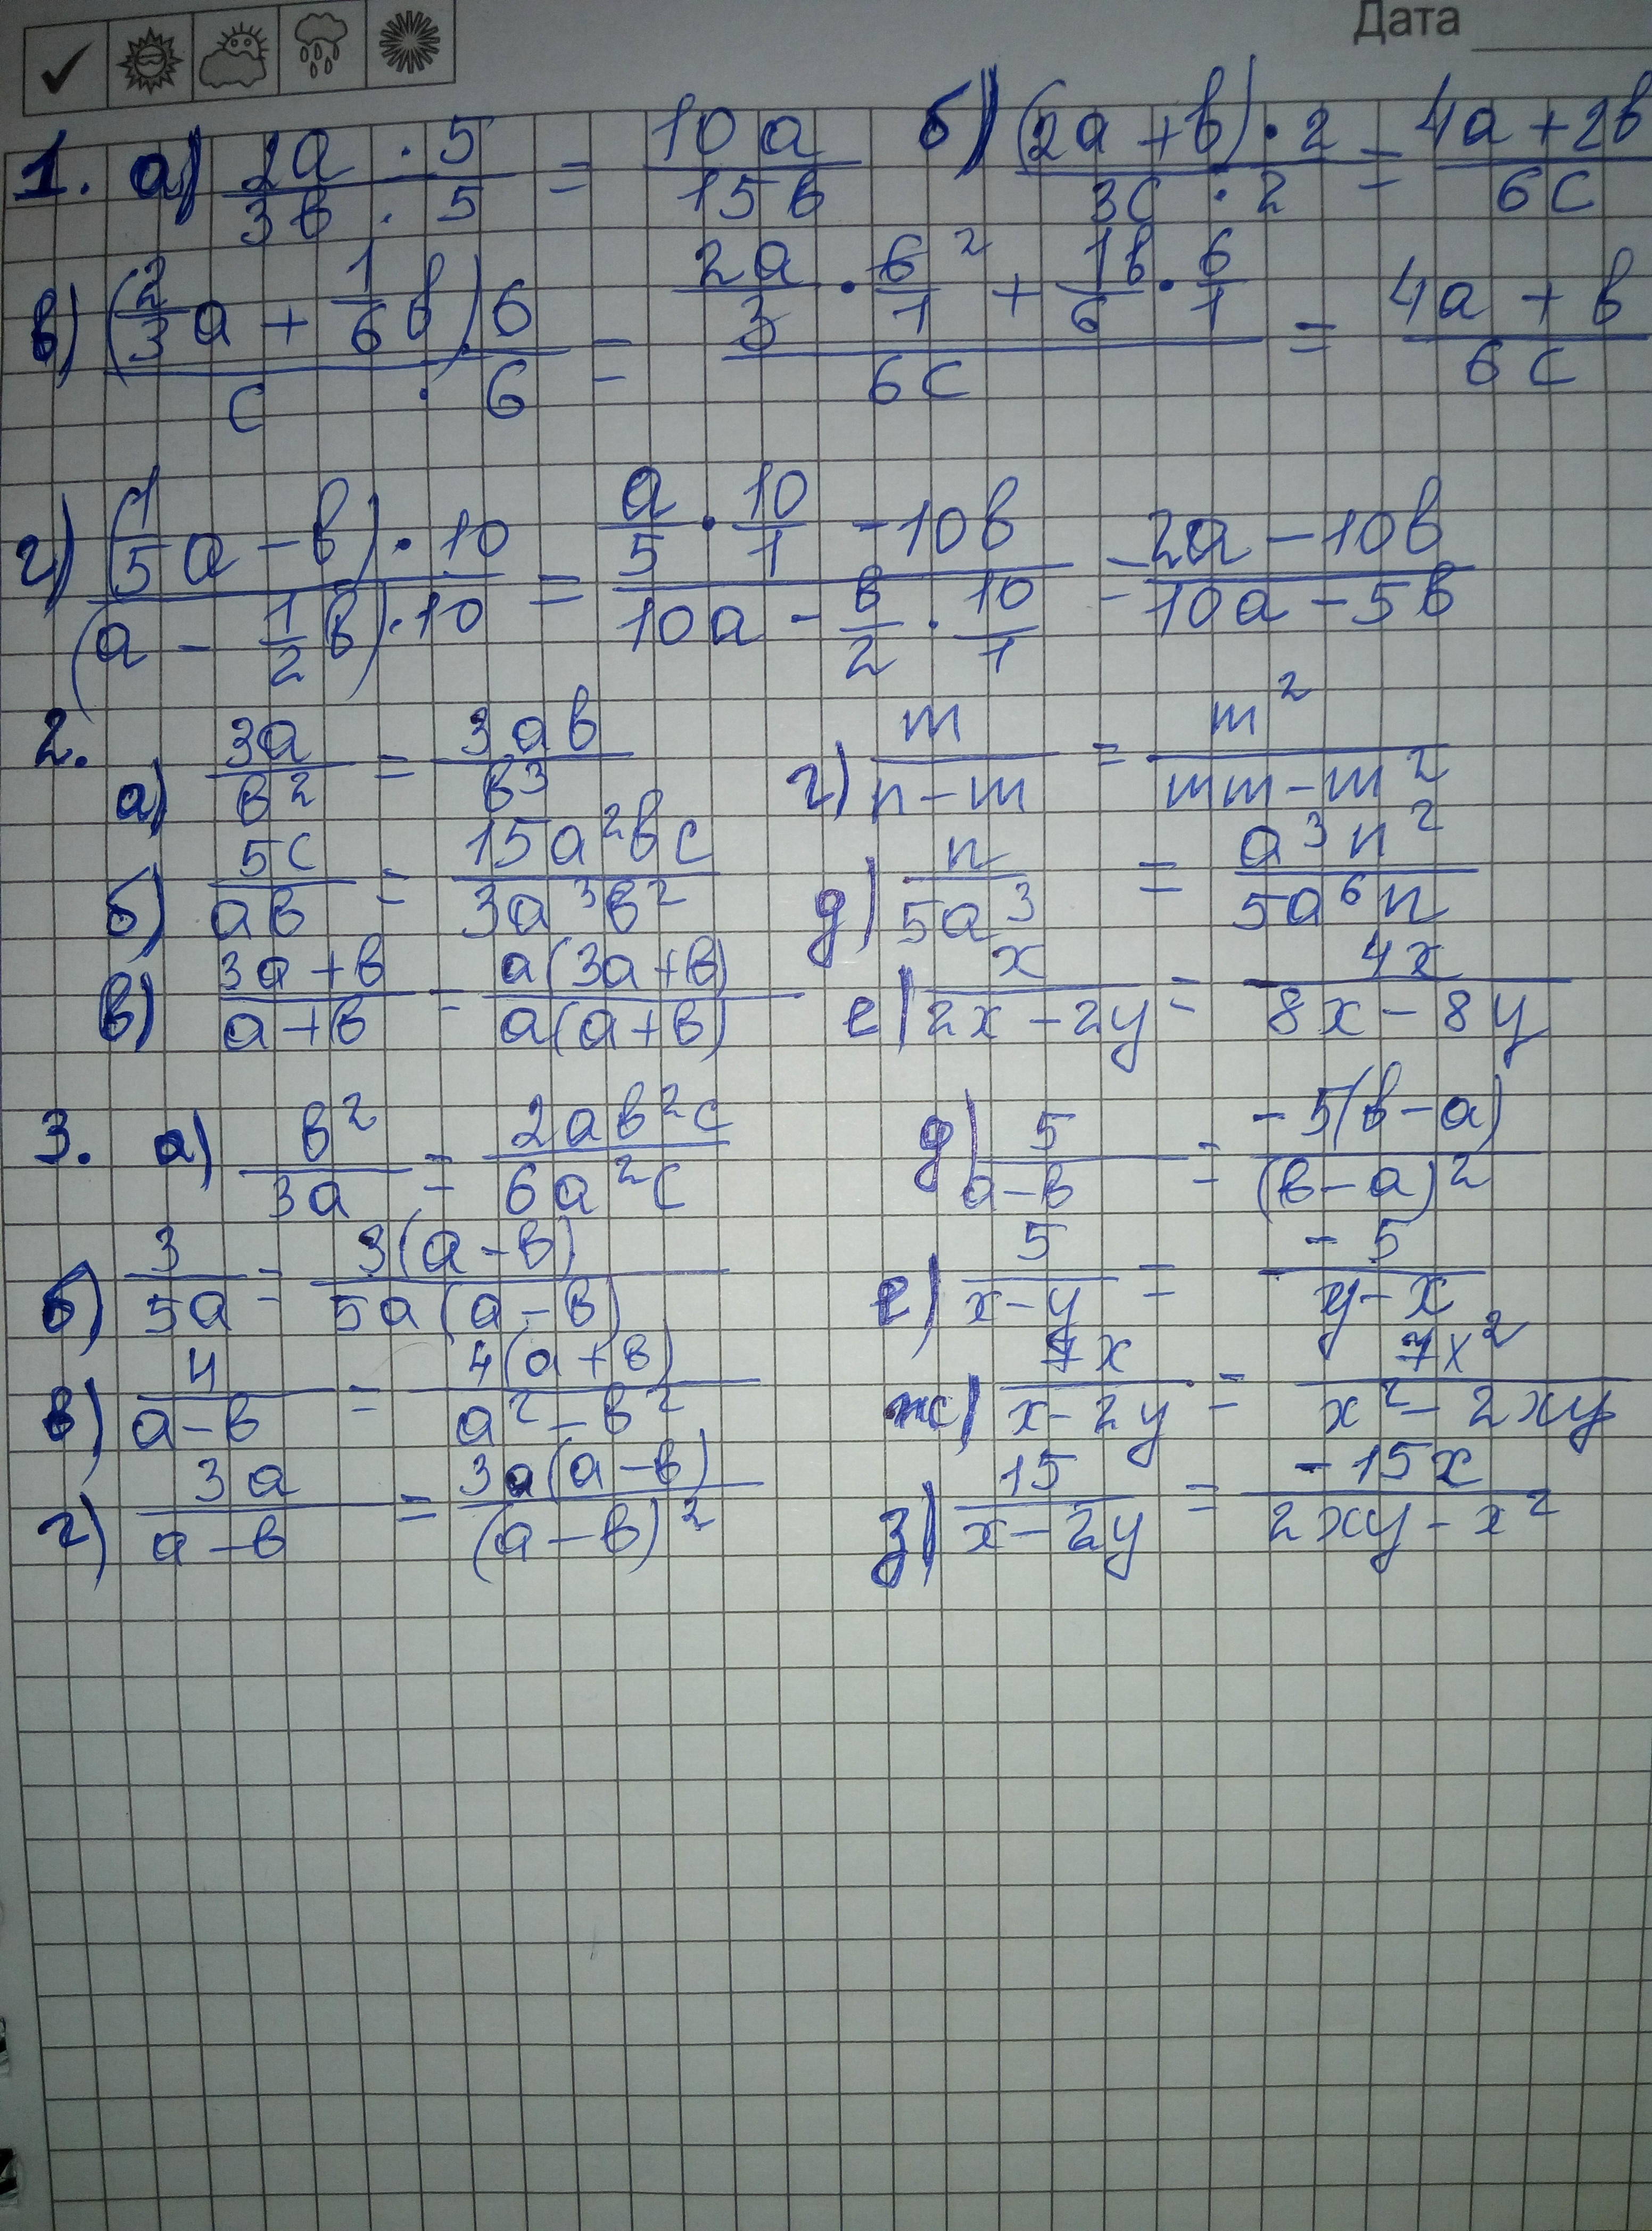 Дата
1. а) (2a · 5)/(3в · 5) = 10a/15в б) ((2a + в) · 2)/(3c · 2) = (4a + 2в)/6c
в) ((2/3 a + 1/6 в) 6)/(c · 6) = (2a/3 · 6/1 ² + 1в/6 · 6/1)/6c = (4a + в)/6c
г) ((1/5 a - в) · 10)/((a - 1/2 в) · 10) = (a/5 · 10/1 - 10в)/(10a - в/2 · 10/1) = (2a - 10в)/(10a - 5в)
2. а) 3a/в² = 3aв/в³ г) m/(n - m) = m²/(mm - m²)
б) 5c/aв = 15a²вc/3a³в² д) n/5a³ = a³n²/5a⁶n
в) (3a + в)/(a + в) = a(3a + в)/a(a + в) е) x/(2x - 2y) = 4x/(8x - 8y)
3. а) в²/3a = 2aв²c/6a²c д) 5/(a - в) = -5(в - a)/(в - a)²
б) 3/5a = 3(a - в)/5a(a - в) е) 5/(x - y) = -5/(y - x)
в) 4/(a - в) = 4(a + в)/(a² - в²) ж) 7x/(x - 2y) = 7x²/(x² - 2xy)
г) 3a/(a - в) = 3a(a - в)/(a - в)² з) 15/(x - 2y) = -15x/(2xy - x²)